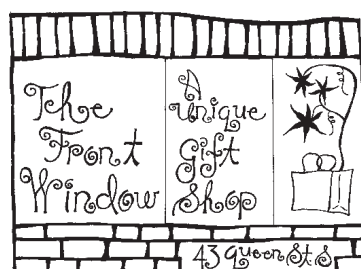 The
Front
Window
A
Unique
Gift
Shop
43 Queen St. S